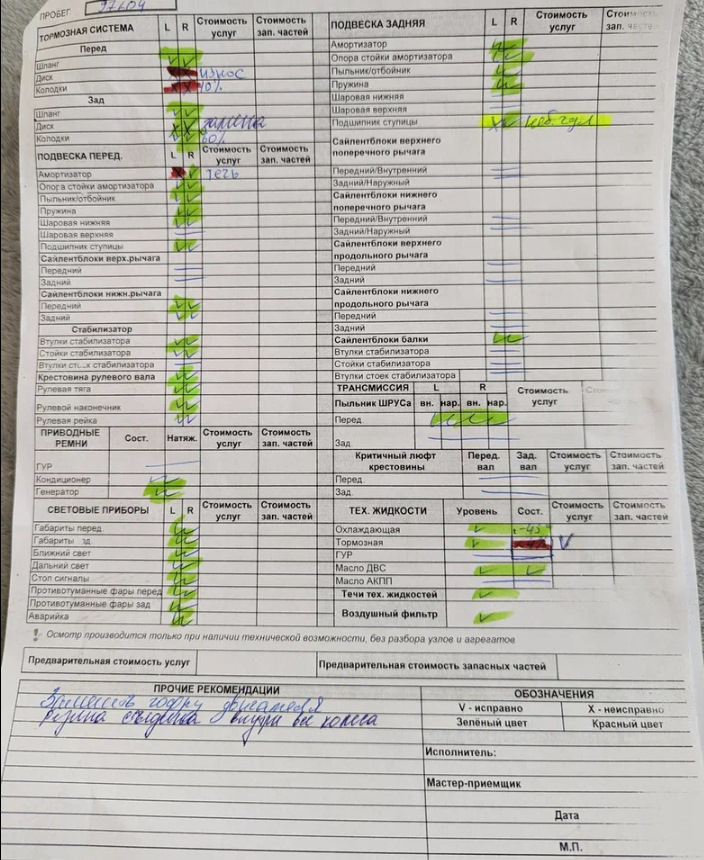 ПРОБЕГ 97604
ТОРМОЗНАЯ СИСТЕМА L R Стоимость услуг Стоимость зап. частей
Перед
Шланг V V
Диск X X износ
Колодки X X 90%
Зад
Шланг V V
Диск X X замена
Колодки V V 60%
ПОДВЕСКА ПЕРЕД. L R Стоимость услуг Стоимость зап. частей
Амортизатор X V течь
Опора стойки амортизатора V V
Пыльник/отбойник V V
Пружина V V
Шаровая нижняя V V
Шаровая верхняя
Подшипник ступицы V V
Сайлентблоки верх.рычага
Передний
Задний
Сайлентблоки нижн.рычага
Передний V V
Задний V V
Стабилизатор
Втулки стабилизатора V V
Стойки стабилизатора V V
Втулки стоек стабилизатора
Крестовина рулевого вала V V
Рулевая тяга V V
Рулевой наконечник V V
Рулевая рейка V V
ПРИВОДНЫЕ РЕМНИ Сост. Натяж. Стоимость услуг Стоимость зап. частей
ГУР
Кондиционер V
Генератор V
СВЕТОВЫЕ ПРИБОРЫ L R Стоимость услуг Стоимость зап. частей
Габариты перед. V V
Габариты зд. V V
Ближний свет V V
Дальний свет V V
Стоп сигналы V V
Противотуманные фары перед V V
Противотуманные фары зад V V
Аварийка V V
ПОДВЕСКА ЗАДНЯЯ L R Стоимость услуг Стоимость зап. частей
Амортизатор V V
Опора стойки амортизатора V V
Пыльник/отбойник V V
Пружина V V
Шаровая нижняя
Шаровая верхняя
Подшипник ступицы X V
Сайлентблоки верхнего поперечного рычага
Передний/Внутренний
Задний/Наружный
Сайлентблоки нижнего поперечного рычага
Передний/Внутренний
Задний/Наружный
Сайлентблоки верхнего продольного рычага
Передний
Задний
Сайлентблоки нижнего продольного рычага
Передний
Задний
Сайлентблоки балки V V
Втулки стабилизатора
Стойки стабилизатора
Втулки стоек стабилизатора
ТРАНСМИССИЯ L R Стоимость услуг
Пыльник ШРУСа вн. нар. вн. нар.
Перед. V V V V
Зад.
Критичный люфт крестовины Перед. вал Зад. вал Стоимость услуг Стоимость зап. частей
Перед.
Зад.
ТЕХ. ЖИДКОСТИ Уровень Сост. Стоимость услуг Стоимость зап. частей
Охлаждающая V -45°
Тормозная V V
ГУР
Масло ДВС V V
Масло АКПП
Течи тех. жидкостей V
Воздушный фильтр V
! Осмотр производится только при наличии технической возможности, без разбора узлов и агрегатов
Предварительная стоимость услуг Предварительная стоимость запасных частей
ПРОЧИЕ РЕКОМЕНДАЦИИ
Заменить гофру двигателя
Резина съедена внутри все колеса
ОБОЗНАЧЕНИЯ
V - исправно X - неисправно
Зелёный цвет Красный цвет
Исполнитель:
Мастер-приемщик
Дата
М.П.